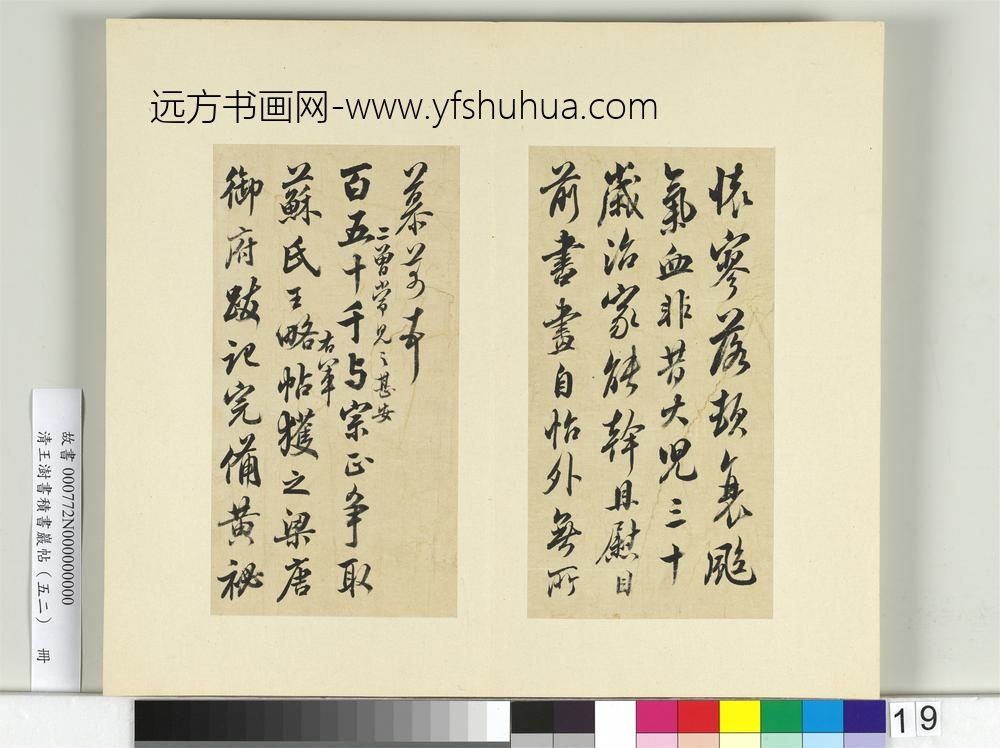 远方书画网-www.yfshuhua.com
懐寥落頼衰颩
氣血非昔大兒三十
歲治家能幹且慰目
前書畫自怡外無所
慕芾頓首
百五十千与宗正争取
二曾常見之甚安
蘇氏王略帖獲之梁唐
右軍
御府跋記完備黄祕
故書 000772N000000000
清王澍書積書巖帖（五二） 冊
19